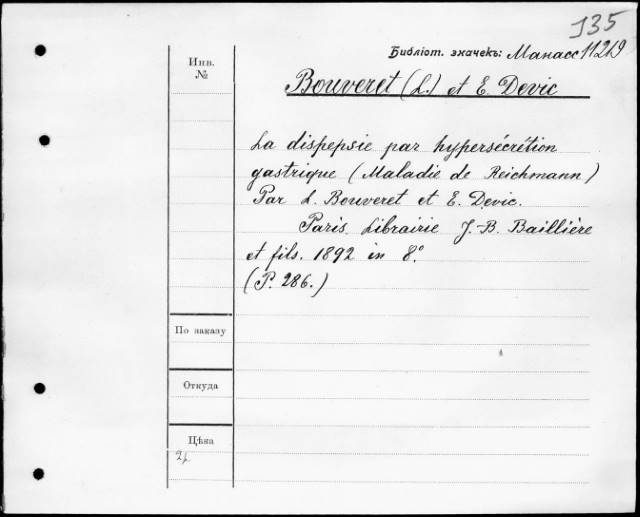 135
Библіот. значекъ: Манасс 11219
Инв.
№
Bouveret (L.) et E. Devic
La dispepsie par hypersécrétion
gastrique (Maladie de Reichmann)
Par L. Bouveret et E. Devic.
Paris. Librairie J.-B. Baillière
et fils. 1892 in 8°.
(P. 286.)
По заказу
Откуда
Цѣна